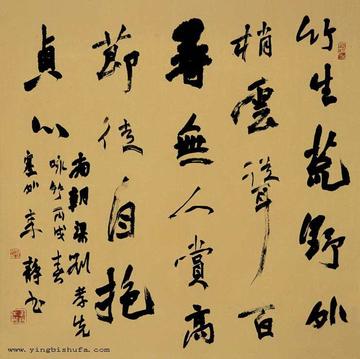 竹生荒野外
梢雲聳百
尋無人賞高
節徒自抱
貞心
南朝梁劉孝先
咏竹丙戌春
塞外
www.yingbishufa.com